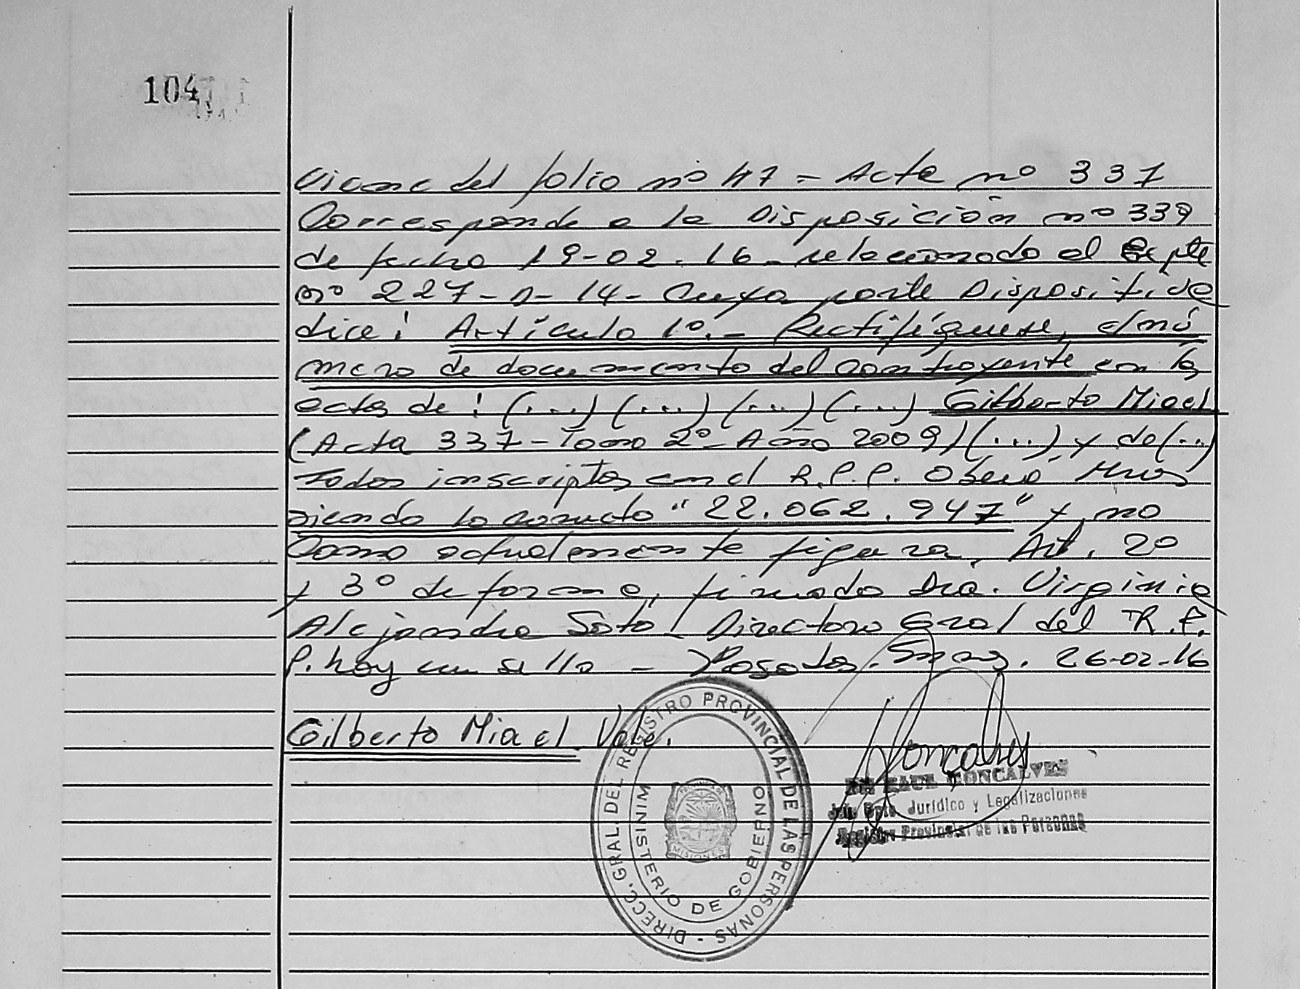 104
Viene del folio nº 47 - Acta nº 337
Corresponde a la Disposición nº 339
de fecha 19-02-16 relacionado al Expte
nº 227-D-14- Cuya parte Dispositiva
dice: Artículo 1º.- Rectifíquese, el nú
mero de documento del contrayente en las
actas de: (...) (...) (...) (...) Gilberto Miael
(Acta 337-Tomo 2º-Año 2009) (...) y de (...)
Todos inscriptos en el R.P.P. Oberá Mnes
siendo lo correcto "22.062.947" y no
Como actualmente figura. Art. 2º
y 3º de forma, firmado Dra. Virginia
Alejandra Soto Directora Gral del R.P.
P. hay un sello - Posadas. Mnes. 26-02-16
Gilberto Miael Vale.
DIRECC. GRAL. DEL REGISTRO PROVINCIAL DE LAS PERSONAS -
MINISTERIO DE GOBIERNO
MISIONES
Goncalves
RAUL GONCALVES
Jefe Dpto. Jurídico y Legalizaciones
Registro Provincial de las Personas